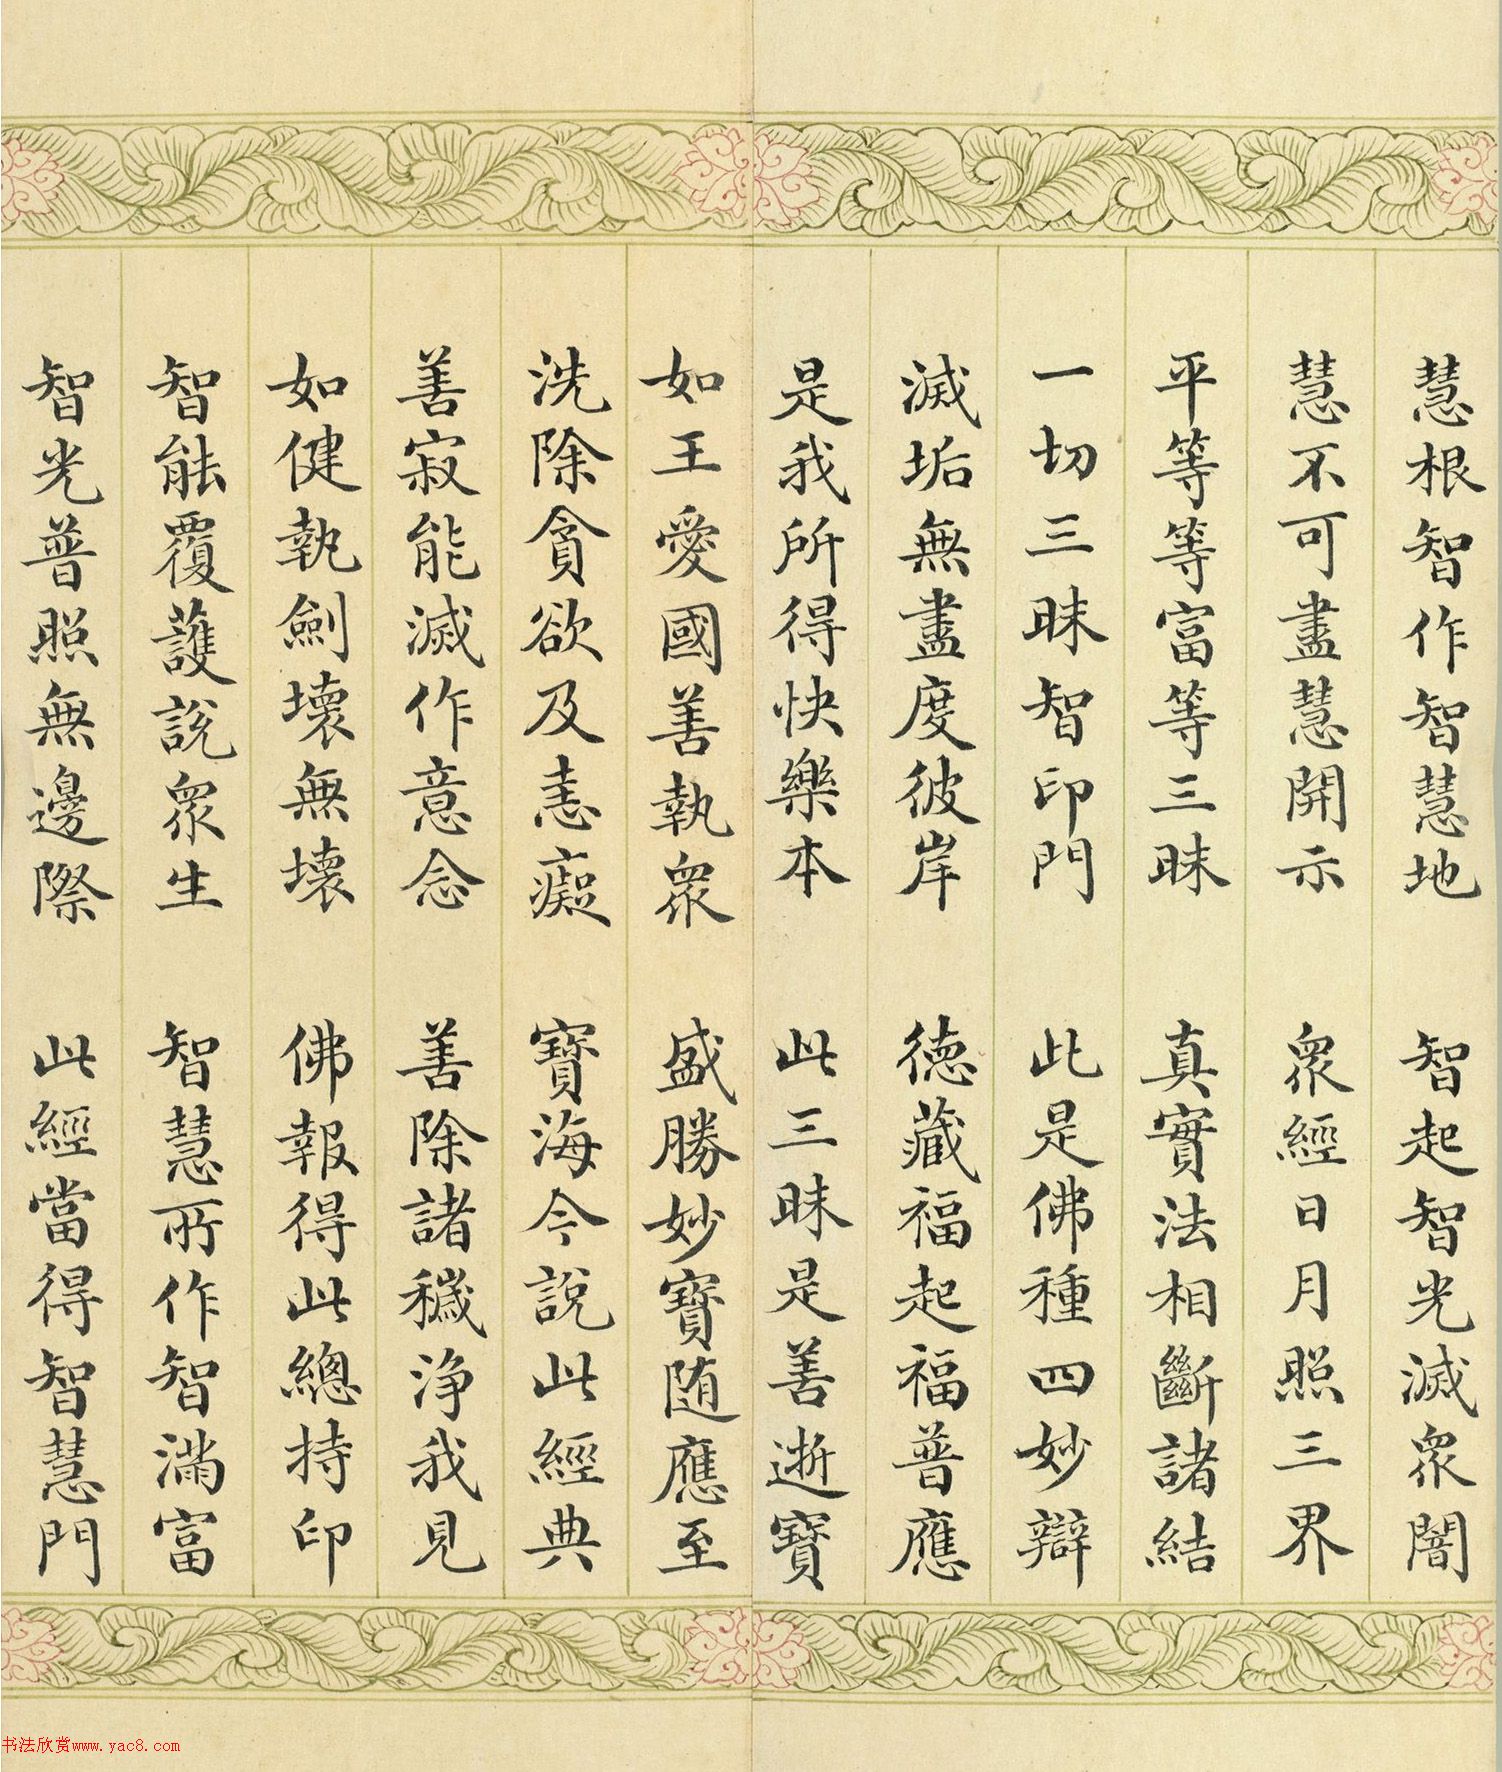 慧根智作智慧地　智起智光滅衆闇
慧不可盡慧開示　衆經日月照三界
平等等富等三昧　真實法相斷諸結
一切三昧智印門　此是佛種四妙辯
滅垢無盡度彼岸　德藏福起福普應
是我所得快樂本　此三昧是善逝寶
如王愛國善執衆　盛勝妙寶随應至
洗除貪欲及恚癡　寶海今說此經典
善寂能滅作意念　善除諸穢淨我見
如健執劍壞無壞　佛報得此總持印
智能覆護說衆生　智慧所作智滿富
智光普照無邊際　此經當得智慧門
书法欣赏www.yac8.com